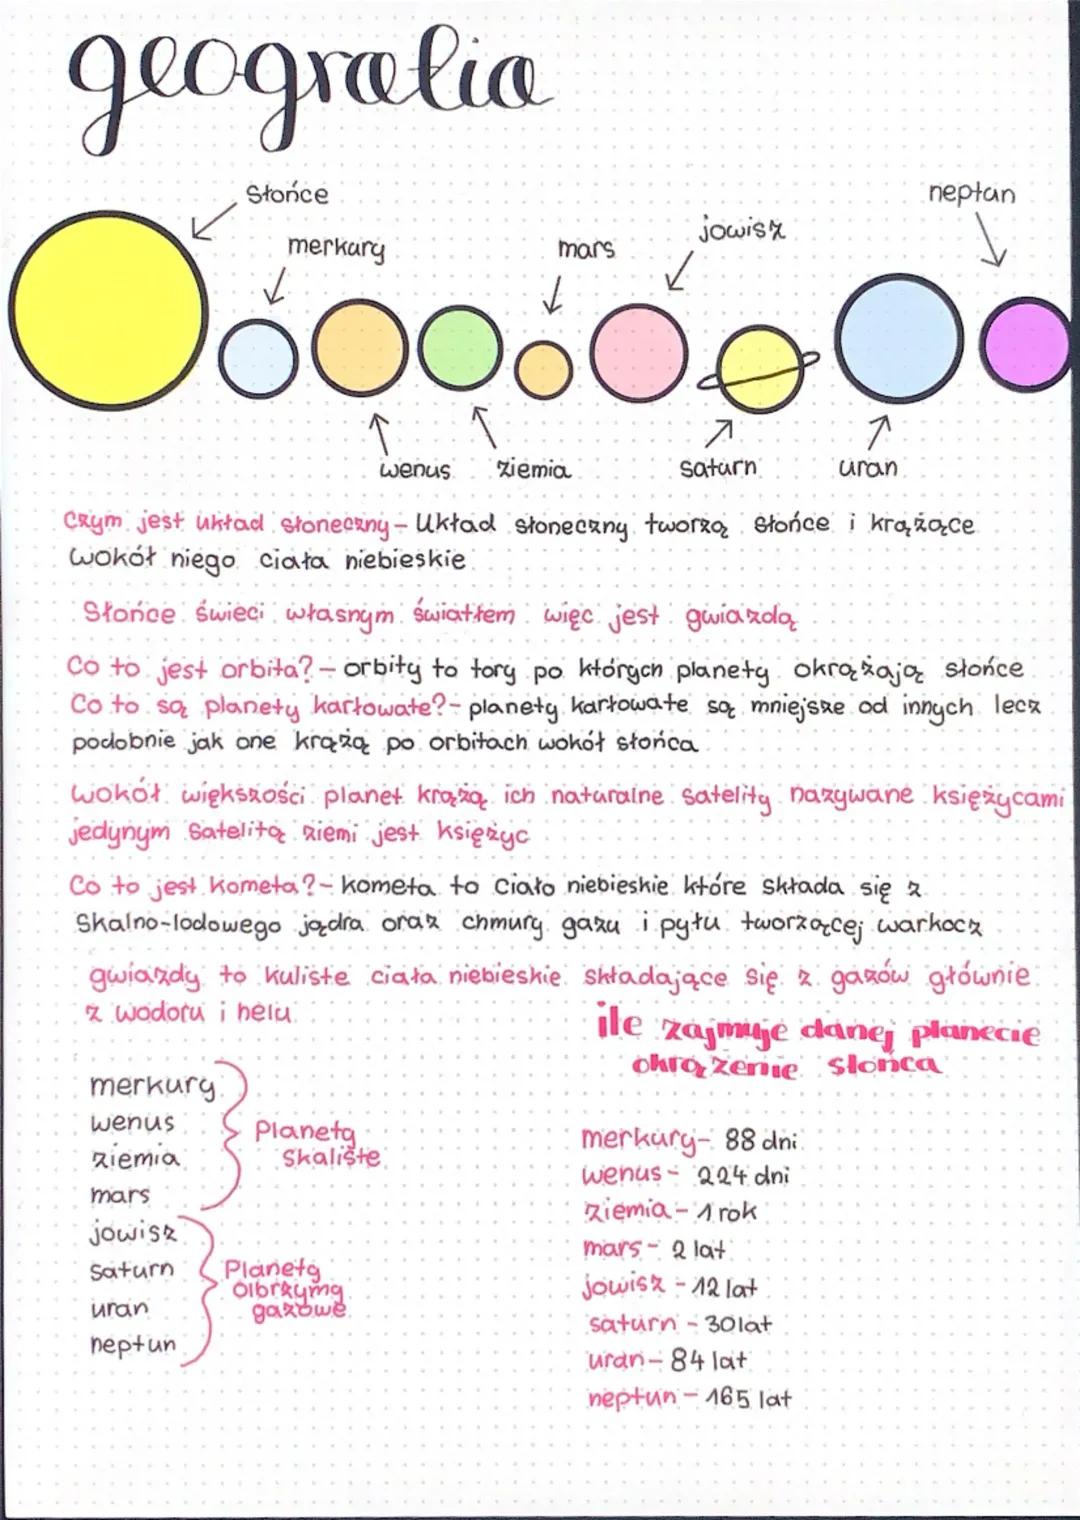 geografia
Słońce
neptun
merkury
mars
jowisz
wenus
ziemia
saturn
uran
Czym jest układ słoneczny – Układ słoneczny tworzą słońce i krążące
wokół niego ciała niebieskie
Słońce świeci własnym światłem więc jest gwiazdą
Co to jest orbita? – orbity to tory po których planety okrążają słońce
Co to są planety karłowate? – planety karłowate są mniejsze od innych lecz
podobnie jak one krążą po orbitach wokół słońca
wokół większości planet krążą ich naturalne satelity nazywane księżycami
jedynym satelitą ziemi jest księżyc
Co to jest kometa? – kometa to ciało niebieskie które składa się z
Skalno-lodowego jądra oraz chmury gazu i pyłu tworzącej warkocz
gwiazdy to kuliste ciała niebieskie składające się z gazów głównie
z wodoru i helu
ile zajmuje danej planecie
okrążenie słońca
merkury
wenus
ziemia
mars
Planety
skaliste
jowisz
saturn
uran
neptun
Planety
olbrzymy
gazowe
merkury – 88 dni
wenus – 224 dni
ziemia – 1 rok
mars – 2 lat
jowisz – 12 lat
saturn – 30 lat
uran – 84 lat
neptun – 165 lat